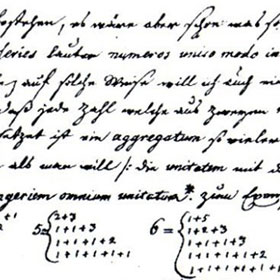 bestehen, es wäre aber schon was so
series lauter numeros uniso modo in
auf solche Weise will ich auch ein
daß jede Zahl welche aus zweyen
ist, ein aggregatum so vieler
als man will /: die unitatem mit d
congeriem omnium unitatum * zum Exemp
5= { 2+3 6= { 1+5
1+1+3 1+2+3
1+1+1+2 1+1+1+3
1+1+1+1+1 1+1+1+1+2
1+1+1+1+1+1